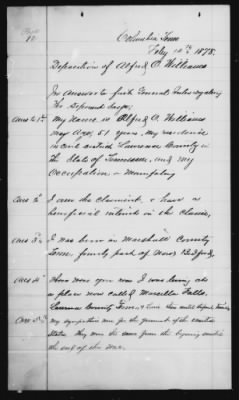 Columbia Tenn
Feby 10th 1873,
Deposition of Alfred O. Williams
In Answer to first General Interrogatory
He Deposed Says;
Ans to 1st, My name is Alfred O. Williams
my Age, 51 years, My residence
in civil district Lawrence County in
the State of Tennessee, and my
Occupation
Ans 2d I am the claimant, & have a
beneficial interest in the claim,
Ans 3d I was born in Marshall County
Tenn, formerly part of
Ans 4th When war I was living at
a place now called Marcella Falls,
County Tenn, & lived there until
Ans 5th my sympathies were for the government of the United
States They were the same from the beginning until
the end of the war.